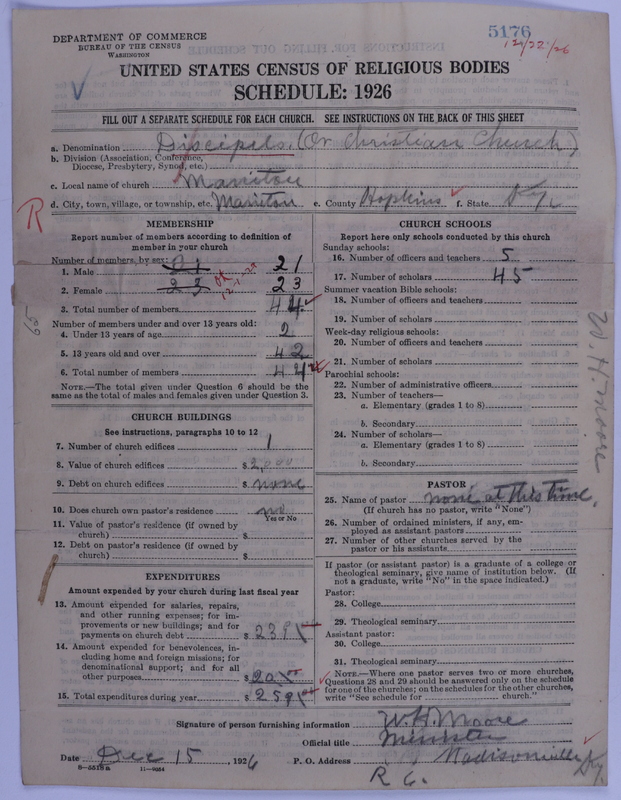 DEPARTMENT OF COMMERCE
BUREAU OF THE CENSUS
WASHINGTON
5176
12/22/26
UNITED STATES CENSUS OF RELIGIOUS BODIES
SCHEDULE: 1926
FILL OUT A SEPARATE SCHEDULE FOR EACH CHURCH. SEE INSTRUCTIONS ON THE BACK OF THIS SHEET
a. Denomination Disciples. (Or Christian Church)
b. Division (Association, Conference,
Diocese, Presbytery, Synod, etc.)
c. Local name of church Manitou
d. City, town, village, or township, etc. Manitou e. County Hopkins f. State Ky.
R
MEMBERSHIP
Report number of members according to definition of
member in your church
Number of members, by sex:
1. Male 21
2. Female 23 23
3. Total number of members 44
Number of members under and over 13 years old:
4. Under 13 years of age 2
5. 13 years old and over 42
6. Total number of members 44
NOTE.—The total given under Question 6 should be
same as the total of males and females given under Question 3.
CHURCH BUILDINGS
See instructions, paragraphs 10 to 12
7. Number of church edifices 1
8. Value of church edifices $ 2,000
9. Debt on church edifices $ none
10. Does church own pastor's residence no
Yes or No
11. Value of pastor's residence (if owned by
church) $
12. Debt on pastor's residence (if owned by
church) $
EXPENDITURES
Amount expended by your church during last fiscal year
13. Amount expended for salaries, repairs,
and other running expenses; for im-
provements or new buildings; and for
payments on church debt $
14. Amount expended for benevolences, in-
cluding home and foreign missions; for
denominational support; and for all
other purposes $
15. Total expenditures during year $
CHURCH SCHOOLS
Report here only schools conducted by this church
Sunday schools:
16. Number of officers and teachers 5
17. Number of scholars 45
Summer vacation Bible schools:
18. Number of officers and teachers
19. Number of scholars
Week-day religious schools:
20. Number of officers and teachers
21. Number of scholars
Parochial schools:
22. Number of administrative officers
23. Number of teachers—
a. Elementary (grades 1 to 8)
b. Secondary
24. Number of scholars—
a. Elementary (grades 1 to 8)
b. Secondary
PASTOR
25. Name of pastor none at this time.
(If church has no pastor, write "None")
26. Number of ordained ministers, if any, em-
ployed as assistant pastors
27. Number of other churches served by the
pastor or his assistants
If pastor (or assistant pastor) is a graduate of a college or
theological seminary, give name of institution below. (If
not a graduate, write "No" in the space indicated.)
Pastor:
28. College
29. Theological seminary
Assistant pastor:
30. College
31. Theological seminary
NOTE.—Where one pastor serves two or more churches,
Questions 28 and 29 should be answered only on the schedule
for one of the churches; on the schedules for the other churches,
write "See schedule for church."
W. H. Moore
Signature of person furnishing information W. H. Moore
Official title Minister
Date Dec 15, 1926 P. O. Address Madisonville, Ky.
8—5518a 11—9054